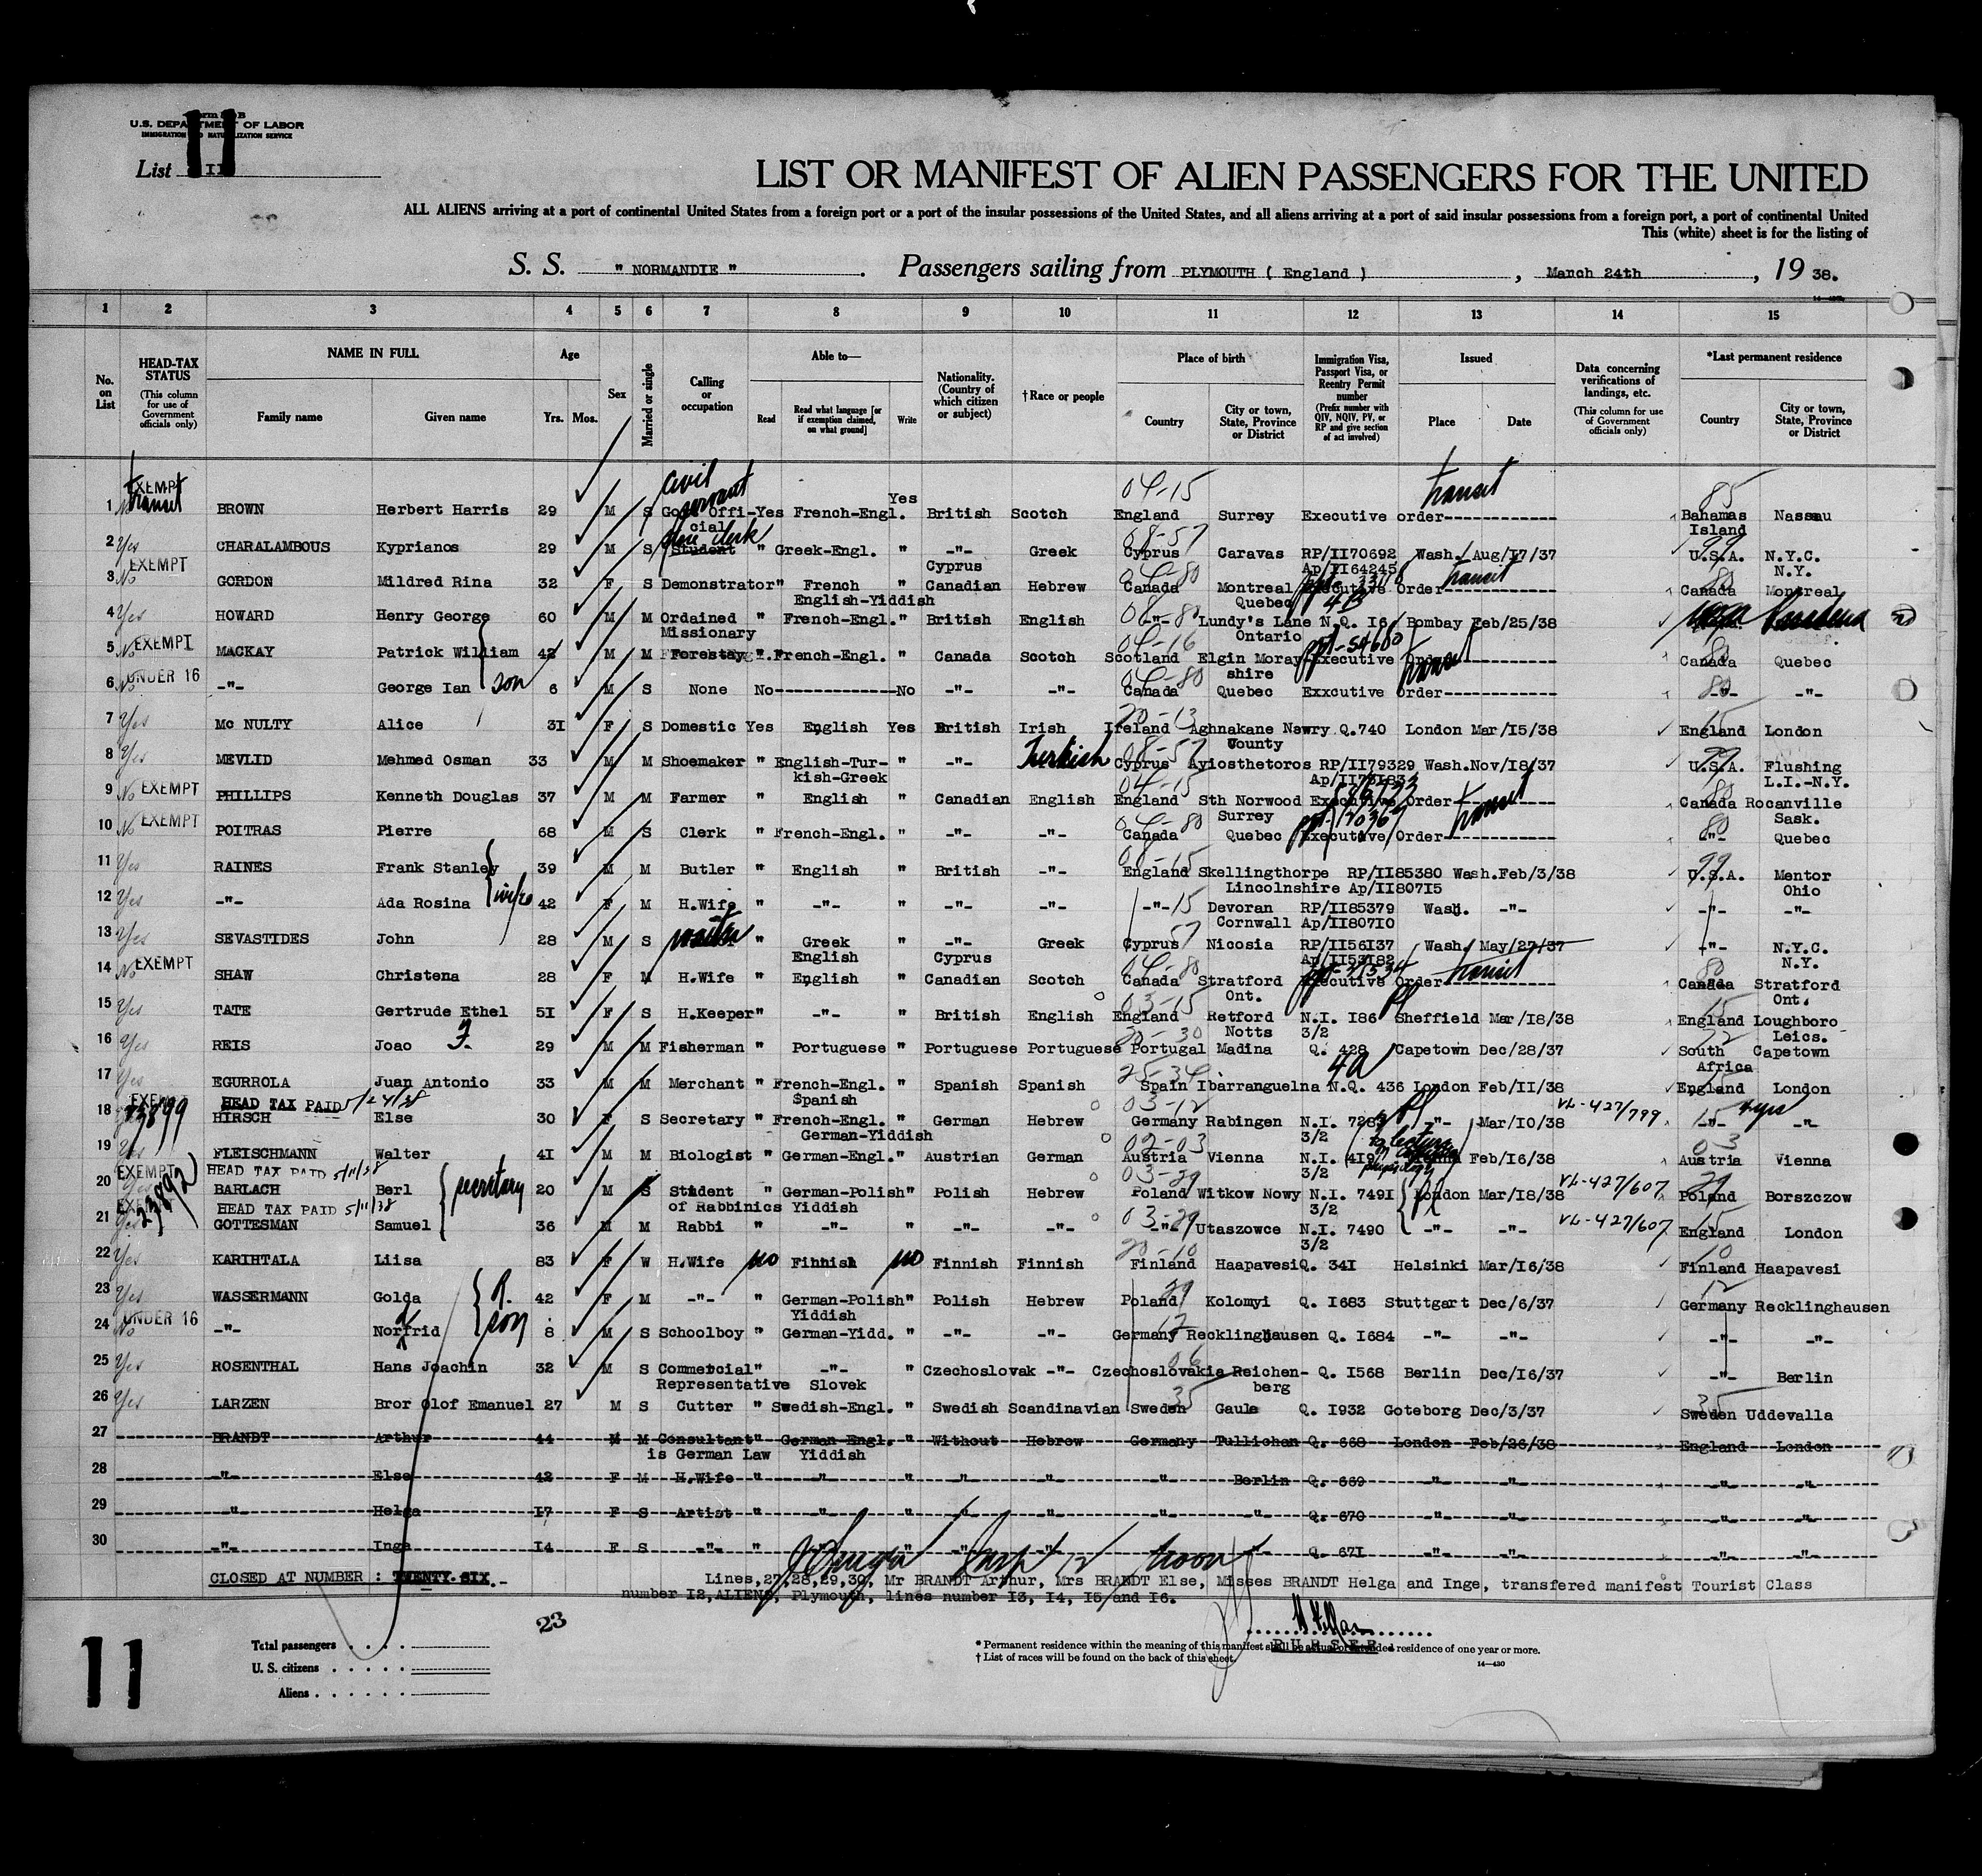 Form 500 B
U.S. DEPARTMENT OF LABOR
IMMIGRATION AND NATURALIZATION SERVICE
11
List II
LIST OR MANIFEST OF ALIEN PASSENGERS FOR THE UNITED
ALL ALIENS arriving at a port of continental United States from a foreign port or a port of the insular possessions of the United States, and all aliens arriving at a port of said insular possessions from a foreign port, a port of continental United
This (white) sheet is for the listing of
S. S. " NORMANDIE " . Passengers sailing from PLYMOUTH ( England ) , March 24th , 19 38.
1 2 3 4 5 6 7 8 9 10 11 12 13 14 15
No. on List
HEAD-TAX STATUS (This column for use of Government officials only)
NAME IN FULL
Family name Given name
Age
Yrs. Mos.
Sex
Married or single
Calling or occupation
Able to—
Read Read what language [or if exemption claimed, on what ground] Write
Nationality. (Country of which citizen or subject)
†Race or people
Place of birth
Country City or town, State, Province or District
Immigration Visa, Passport Visa, or Reentry Permit number (Prefix number with QIV, NQIV, PV, or RP and give section of act involved)
Issued
Place Date
Data concerning verifications of landings, etc. (This column for use of Government officials only)
*Last permanent residence
Country City or town, State, Province or District
EXEMPT civil servant 04-15 transit 85
1 No transit BROWN Herbert Harris 29 M S Govt Offi-cial Yes French-Engl. Yes British Scotch England Surrey Executive order Bahamas Island Nassau
2 Yes CHARALAMBOUS Kyprianos 29 M S Student clerk " Greek-Engl. " -"- Cyprus Greek 08-57 Cyprus Caravas RP/II70692 Ap/II64245 Wash. Aug/17/37 99 U.S.A. N.Y.C. N.Y.
3 No EXEMPT GORDON Mildred Rina 32 F S Demonstrator " French English-Yiddish " Canadian Hebrew 04-80 Canada Montreal Quebec Executive Order transit 80 Canada Montreal
4 Yes HOWARD Henry George 60 M M Ordained Missionary " French-Engl. " British English -"- 80 Lundy's Lane Ontario N.Q. I6 4B Bombay Feb/25/38
5 No EXEMPT MACKAY Patrick William 42 M M " French-Engl. " Canada Scotch 04-16 Scotland Elgin Morayshire ppt-54680 Executive Order transit 80 Canada Quebec
6 No UNDER 16 -"- George Ian son 6 M S None No No -"- -"- 04-80 Canada Quebec Exxcutive Order 80 -"- -"-
7 Yes Mc NULTY Alice 3I F S Domestic Yes English Yes British Irish 20-13 Ireland Aghnakane Newry County Q.740 London Mar/15/38 15 England London
8 Yes MEVLID Mehmed Osman 33 M M Shoemaker " English-Turkish-Greek " -"- Turkish 08-57 Cyprus Ayiosthetoros RP/II79329 Wash. Nov/18/37 99 U.S.A. Flushing L.I.-N.Y.
9 No EXEMPT PHILLIPS Kenneth Douglas 37 M M Farmer " English " Canadian English 04-15 England Sth Norwood Surrey Executive Order transit 80 Canada Rocanville Sask.
10 No EXEMPT POITRAS Pierre 68 M S Clerk " French-Engl. " -"- -"- 04-80 Canada Quebec Executive Order 80 -"- Quebec
11 Yes RAINES Frank Stanley 39 M M Butler " English " British -"- 08-15 England Skellingthorpe Lincolnshire RP/II85380 Ap/II80715 Wash. Feb/3/38 99 U.S.A. Mentor Ohio
12 Yes -"- Ada Rosina wife 42 F M H.Wife " -"- " -"- -"- -"- 15 Devoran Cornwall RP/II85379 Ap/II80710 Wash. -"- -"- -"-
13 Yes SEVASTIDES John 28 M S waiter " Greek English " -"- Cyprus Greek Cyprus 57 Nicosia RP/II56I37 Ap/II53182 Wash. May/27/37 -"- N.Y.C. N.Y.
14 No EXEMPT SHAW Christena 28 F M H.Wife " English " Canadian Scotch 04-80 Canada Stratford Ont. Executive Order transit 80 Canada Stratford Ont.
15 Yes TATE Gertrude Ethel 5I F S H.Keeper " -"- " British English 03-15 England Retford Notts N.I. I86 3/2 Pl Sheffield Mar/18/38 15 England Loughboro Leics.
16 Yes REIS Joao F. 29 M M Fisherman " Portuguese " Portuguese Portuguese 20-30 Portugal Madina Q. 428 Capetown Dec/28/37 22 South Africa Capetown
17 Yes EGURROLA Juan Antonio 33 M M Merchant " French-Engl. Spanish " Spanish Spanish 25-34 Spain Ibarranguelna N.Q. 436 4a London Feb/11/38 England London
EXEMPT HEAD TAX PAID 5/24/38
18 HIRSCH Else 30 F S Secretary " French-Engl. German-Yiddish " German Hebrew 03-12 Germany Rabingen N.I. 7283 3/2 Pl -"- Mar/10/38 VL-427/799 15 -"- 4 yrs -"-
19 Yes FLEISCHMANN Walter 4I M M Biologist " German-Engl. " Austrian German 02-03 Austria Vienna N.I. 419 3/2 to lecture physiology Vienna Feb/16/38 03 Austria Vienna
EXEMPT HEAD TAX PAID 5/11/38 23892
20 Yes BARLACH Berl secretary 20 M S Student of Rabbinics " German-Polish Yiddish " Polish Hebrew 03-29 Poland Witkow Nowy N.I. 749I 3/2 London Mar/18/38 VL-427/607 29 Poland Borszczow
HEAD TAX PAID 5/11/38
21 Yes GOTTESMAN Samuel 36 M M Rabbi " -"- " -"- -"- 03-29 -"- Utaszowce N.I. 7490 3/2 Pl -"- -"- VL-427/607 15 England London
22 Yes KARIHTALA Liisa 83 F W H.Wife no Finnish no Finnish Finnish 20-10 Finland Haapavesi Q. 34I Helsinki Mar/16/38 10 Finland Haapavesi
23 Yes WASSERMANN Golda 42 F M -"- " German-Polish Yiddish " Polish Hebrew 29 Poland Kolomyi Q. I683 Stuttgart Dec/6/37 12 Germany Recklinghausen
24 No UNDER 16 -"- Norfrid son 8 M S Schoolboy " German-Yidd. " -"- -"- 12 Germany Recklinghausen Q. I684 -"- -"- -"- -"-
25 Yes ROSENTHAL Hans Joachin 32 M S Commercial Representative " -"- Slovek " Czechoslovak -"- 06 Czechoslovakia Reichenberg Q. I568 Berlin Dec/16/37 -"- Berlin
26 Yes LARZEN Bror Olof Emanuel 27 M S Cutter " Swedish-Engl. " Swedish Scandinavian 35 Sweden Gaule Q. I932 Goteborg Dec/3/37 35 Sweden Uddevalla
27 BRANDT Arthur 44 M M Consultant is German Law " German-Engl. Yiddish " Without Hebrew Germany Tullichan Q. 668 London Feb/26/38 England London
28 -"- Else 42 F M H.Wife " -"- " -"- -"- -"- Berlin Q. 669 -"- -"- -"- -"-
29 -"- Helga I7 F S Artist " -"- " -"- -"- -"- Q. 670 -"- -"- -"- -"-
30 -"- Inge I4 F S -"- " -"- -"- Q. 67I -"- -"- -"- -"-
CLOSED AT NUMBER : TWENTY SIX.-
Lines,27,28,29,30, Mr BRANDT Arthur, Mrs BRANDT Else, Misses BRANDT Helga and Inge, transfered manifest Tourist Class
number I2,ALIENS, Plymouth, lines number I3, I4, I5 and I6.
23
PURSER
Total passengers . . . .
U. S. citizens . . . . .
Aliens . . . . . .
* Permanent residence within the meaning of this manifest shall be actual or intended residence of one year or more.
† List of races will be found on the back of this sheet.
14—430
11